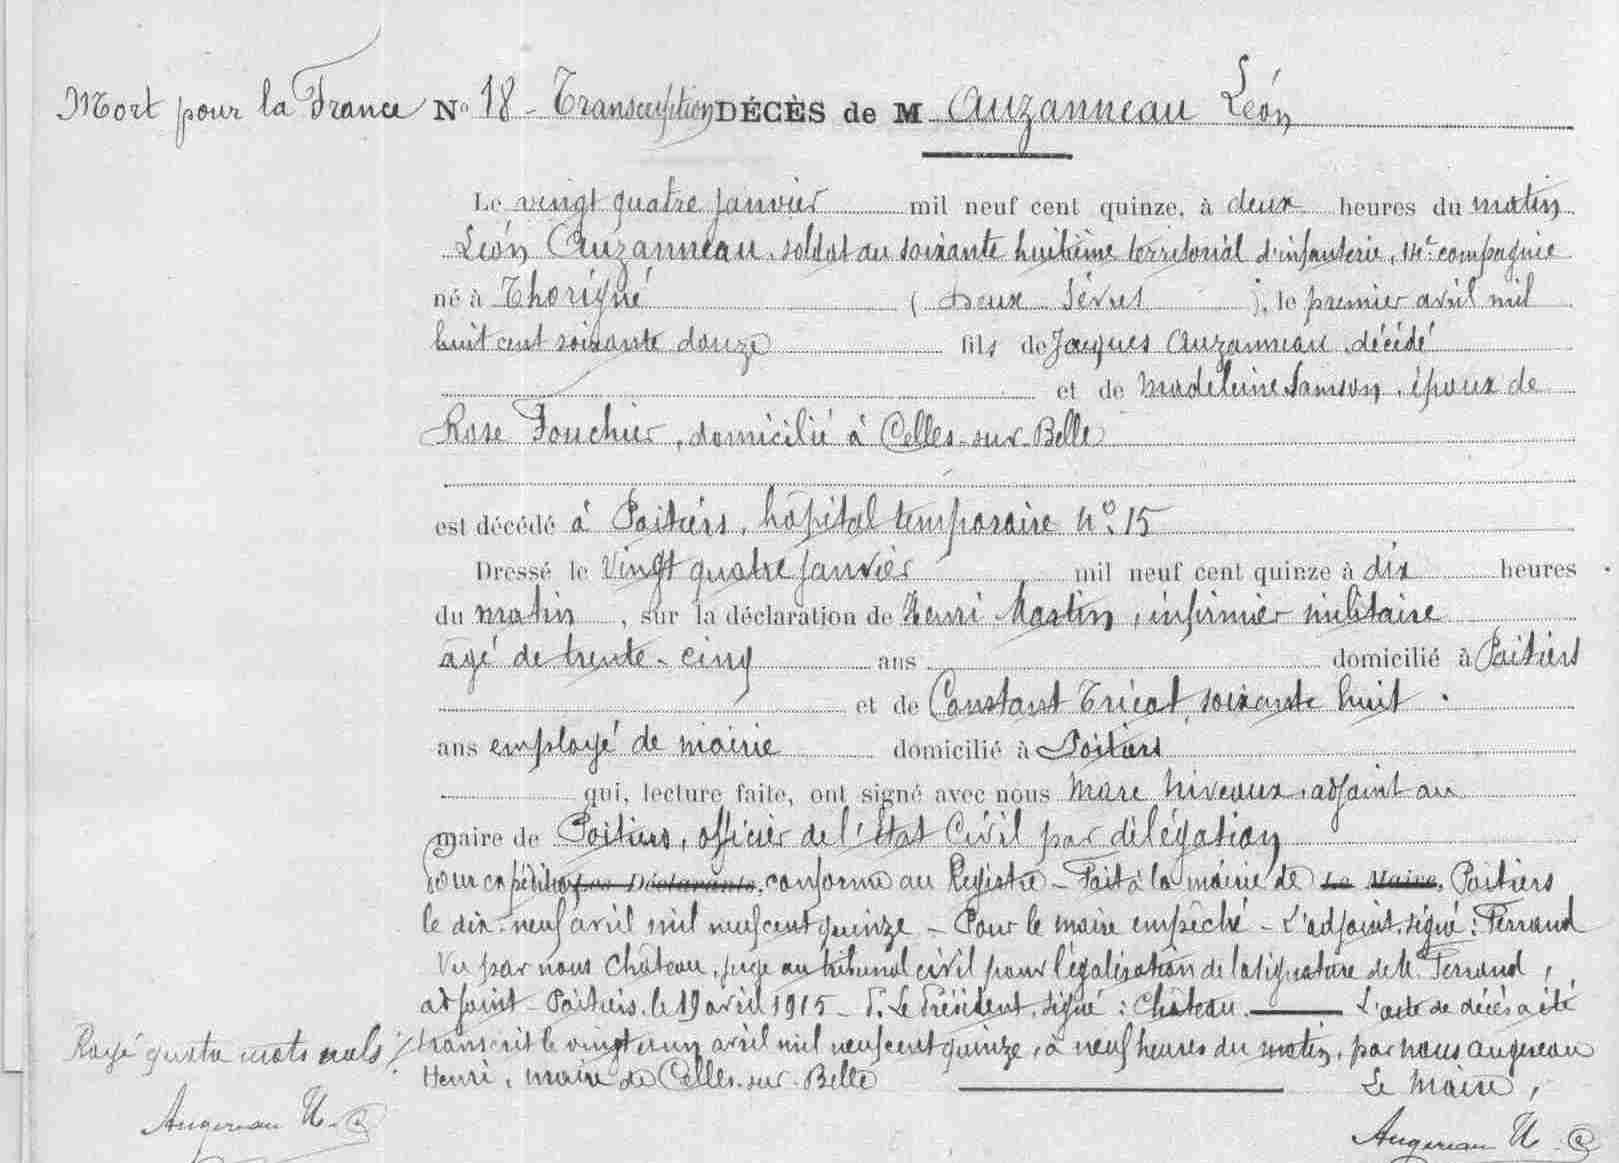 Mort pour la France Nº 18 - Transcription DÉCÈS de M Auzanneau Léon
Le vingt quatre janvier mil neuf cent quinze, à deux heures du matin
Léon Auzanneau, soldat au soixante huitième territorial d'infanterie, 14e compagnie
né à Thorigné ( Deux Sèvres ), le premier avril mil
huit cent soixante douze fils de Jacques Auzanneau, décédé
et de Madeleine Samson, époux de
Rose Fouchier, domicilié à Celles-sur-Belle
est décédé à Poitiers, hôpital temporaire nº 15
Dressé le vingt quatre janvier mil neuf cent quinze à dix heures
du matin, sur la déclaration de Henri Martin, infirmier militaire
âgé de trente-cinq ans domicilié à Poitiers
et de Constant Tricot, soixante huit
ans employé de mairie domicilié à Poitiers
qui, lecture faite, ont signé avec nous Marc Niveaux, adjoint au
maire de Poitiers, officier de l'état Civil par délégation
Pour expédition Les Déclarants, conforme au Registre - Fait à la mairie de Le Maire, Poitiers
le dix-neuf avril mil neuf cent quinze - Pour le maire empêché - L'adjoint, signé : Ferrand
Vu par nous Château, juge au tribunal civil pour légalisation de la signature de M. Ferrand,
adjoint - Poitiers, le 19 avril 1915 - P. Le Président, signé : Château. L'acte de décès a été
transcrit le vingt un avril mil neuf cent quinze, à neuf heures du matin, par nous Augereau
Henri, maire de Celles-sur-Belle Le Maire,
Rayé quatre mots nuls
Augereau H.
Augereau H.